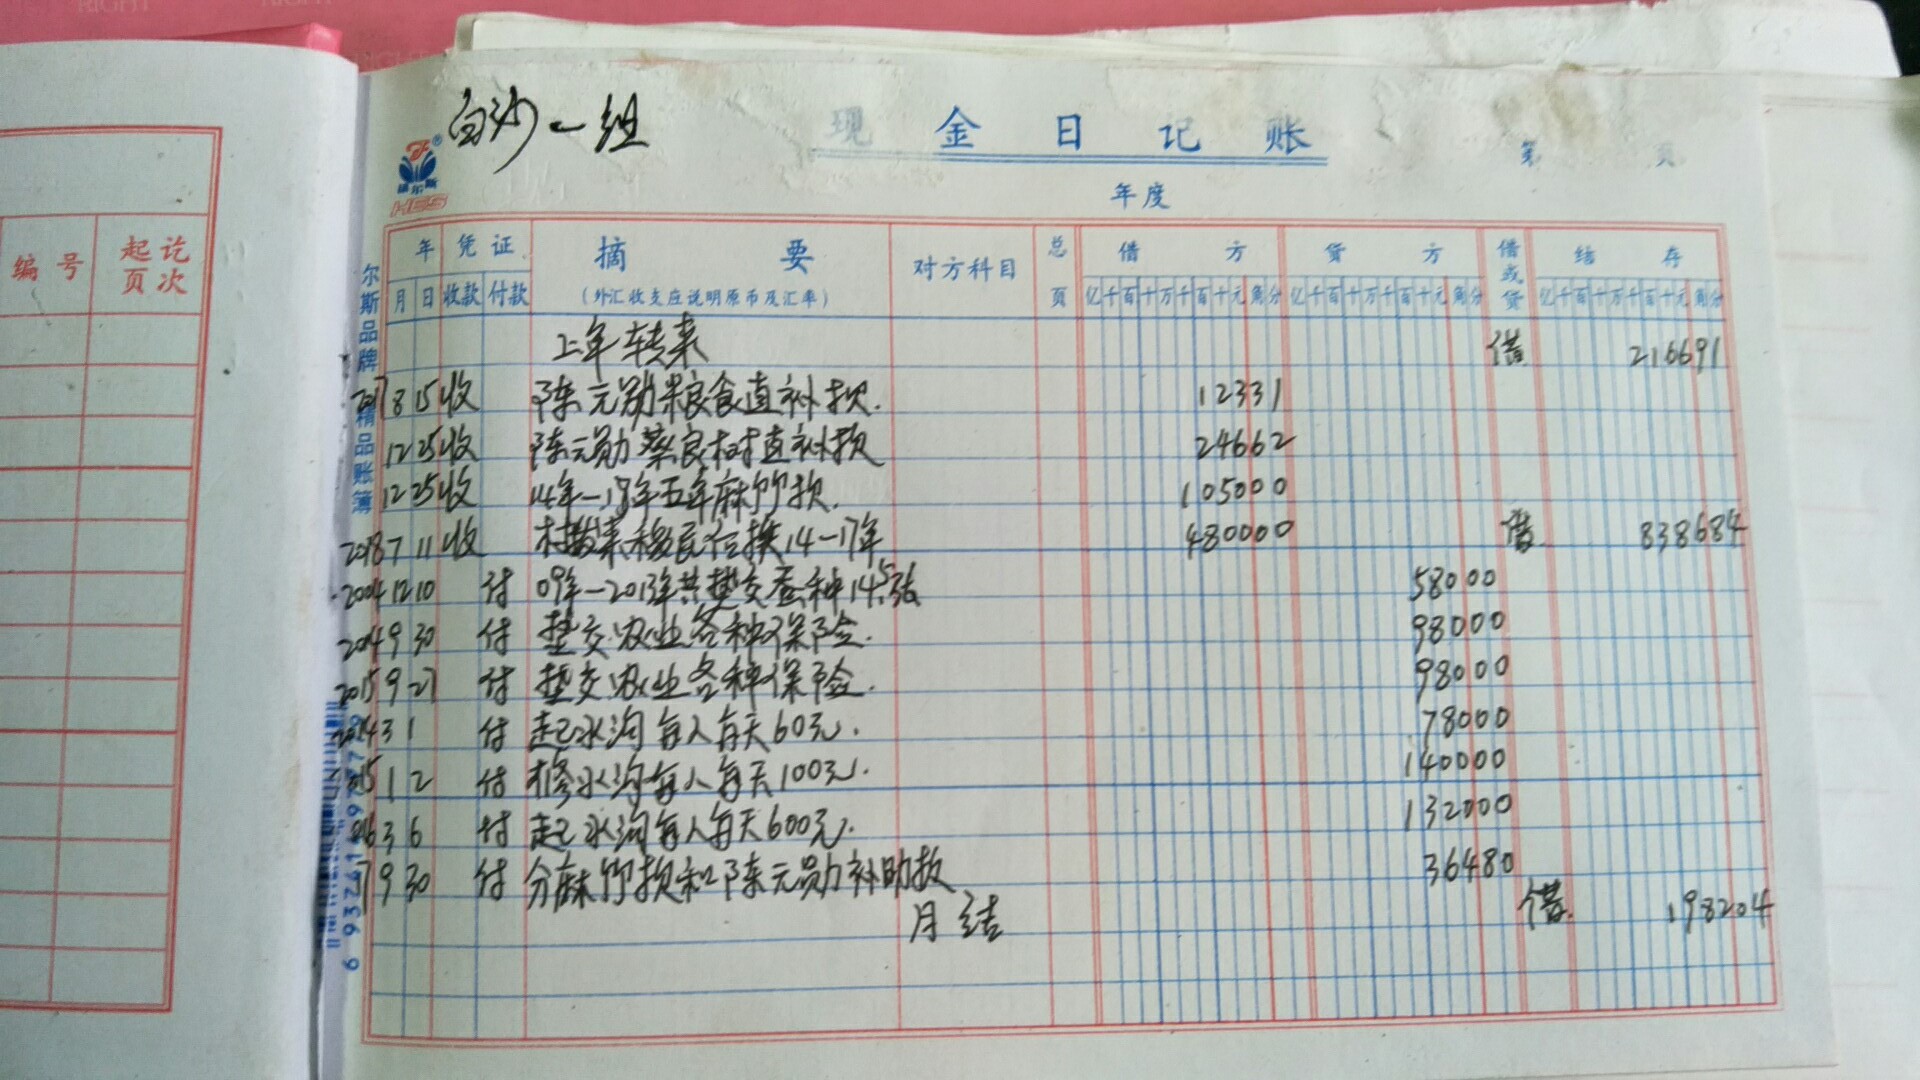 RIGHT RIGHT
白沙一组
现金日记账
第 页
年度
HES
编号 起讫页次
年 凭证 摘要 对方科目 总页 借方 贷方 借或贷 结存
月 日 收款 付款 (外汇收支应说明原币及汇率) 亿千百十万千百十元角分 亿千百十万千百十元角分 亿千百十万千百十元角分
上年转来 借 216691
2017 8 15 收 陈元勋粮食直补款. 12331
12 25 收 陈元勋 直补款 24662
12 25 收 14年—18年五年麻竹款. 105000
2018 7 11 收 14—17年 480000 借 838684
2004 12 10 付 09年—2013年共垫交蚕种14.5张 58000
2014 9 30 付 垫交农业各种保险. 98000
2015 9 27 付 垫交农业各种保险. 98000
2014 3 1 付 起水沟每人每天60元. 78000
15 1 2 付 修水沟每人每天100元. 140000
16 3 6 付 起水沟每人每天600元. 132000
17 9 30 付 分麻竹款和陈元勋补助款 36480
月结 借. 198204
尔斯品牌
精品账簿